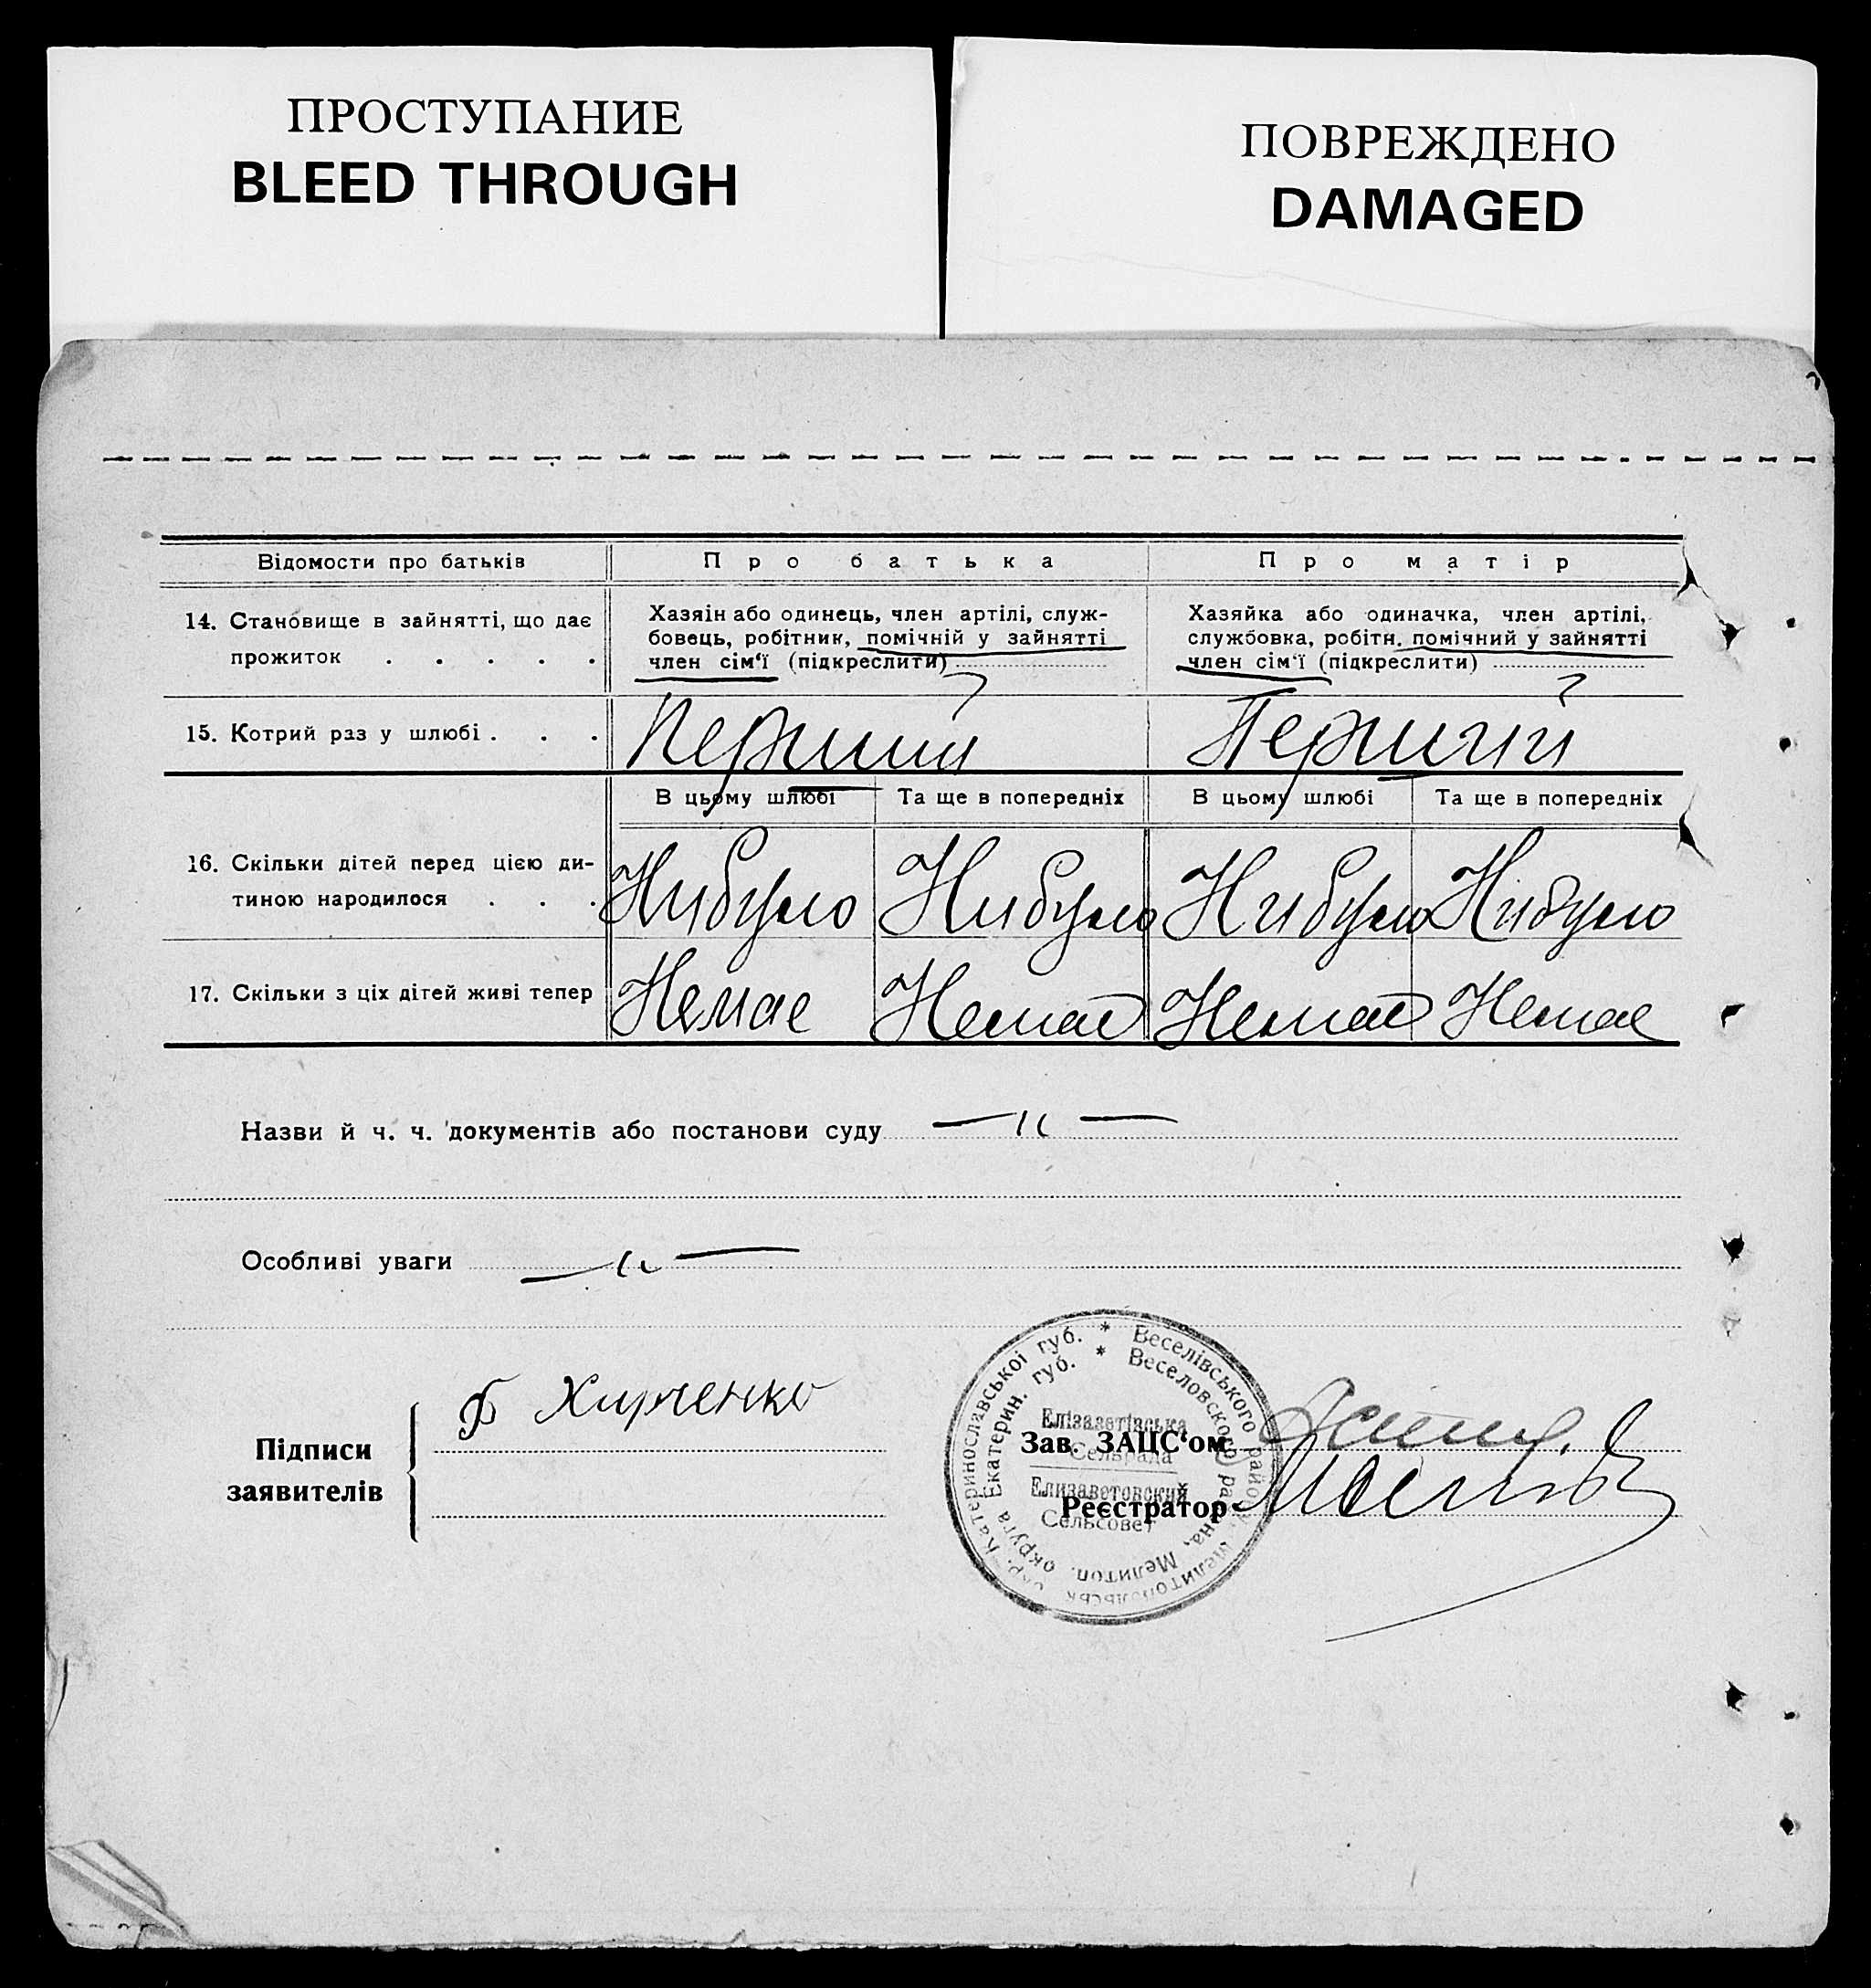 ПРОСТУПАНИЕ
BLEED THROUGH
ПОВРЕЖДЕНО
DAMAGED
Відомости про батьків
Про батька
Про матір
14. Становище в зайнятті, що дає
прожиток . . . . .
Хазяін або одинець, член артілі, служ-
бовець, робітник, помічній у зайнятті
член сім'ї (підкреслити)
Хазяйка або одиначка, член артілі,
службовка, робітн. помічний у зайнятті
член сім'ї (підкреслити)
15. Котрий раз у шлюбі . . .
Перший
Перший
В цьому шлюбі
Та ще в попередніх
В цьому шлюбі
Та ще в попередніх
16. Скільки дітей перед цією ди-
тиною народилося . . .
Нибуло
Нибуло
Нибуло
Нибуло
17. Скільки з ціх дітей живі тепер
Немає
Немає
Немає
Немає
Назви й ч. ч. документів або постанови суду — „ —
Особливі уваги — „ —
Підписи
заявителів
Зав. ЗАЦС'ом
Реєстратор
Катеринославської губ. * Веселівського району, Мелитопольськ окр.
Екатерин. губ. * Веселовского района, Мелитоп. округа
Елізаветівська
Сельрада
Елизаветовский
Сельсовет